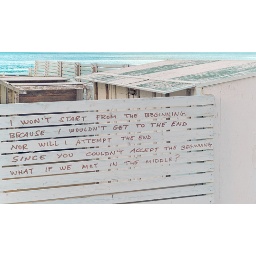 I WON'T START FROM THE BEGINNING
BECAUSE I WOULDN'T GET TO THE END
NOR WILL I ATTEMPT THE END
SINCE YOU COULDN'T ACCEPT THE BEGINNING
WHAT IF WE MET IN THE MIDDLE?